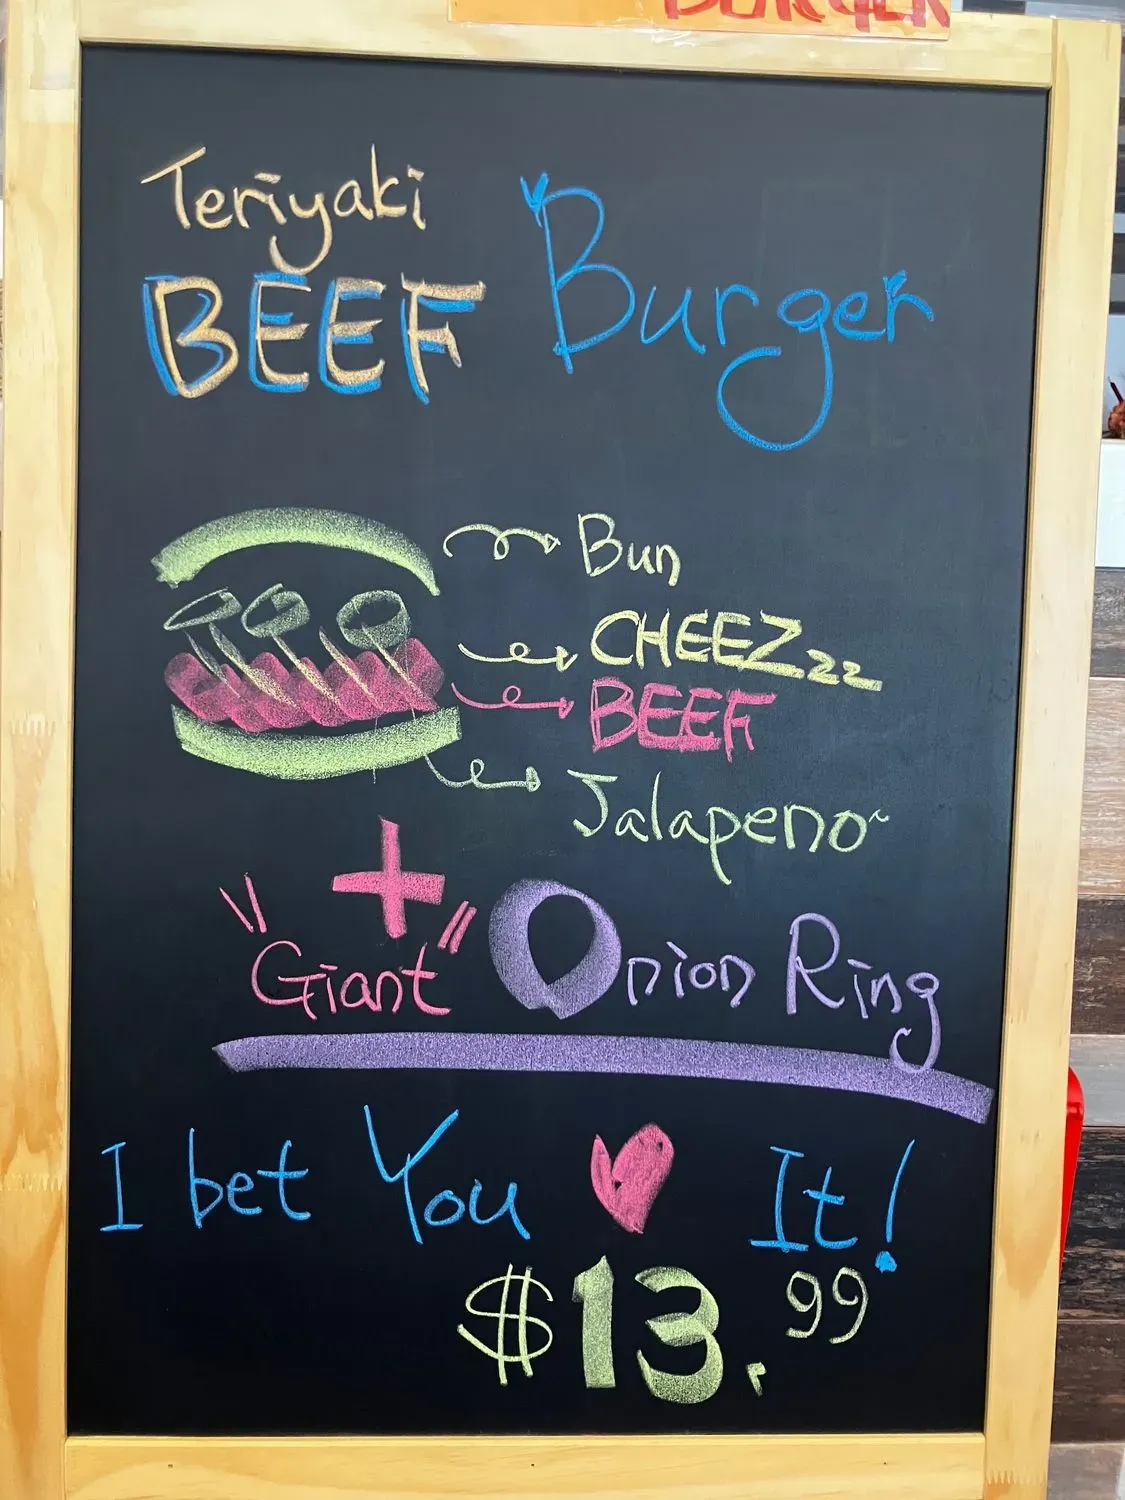 BURGER
Teriyaki
BEEF Burger
Bun
CHEEZzz
BEEF
Jalapeno~
+
"Giant" Onion Ring
I bet You ♥ It!
$13.99